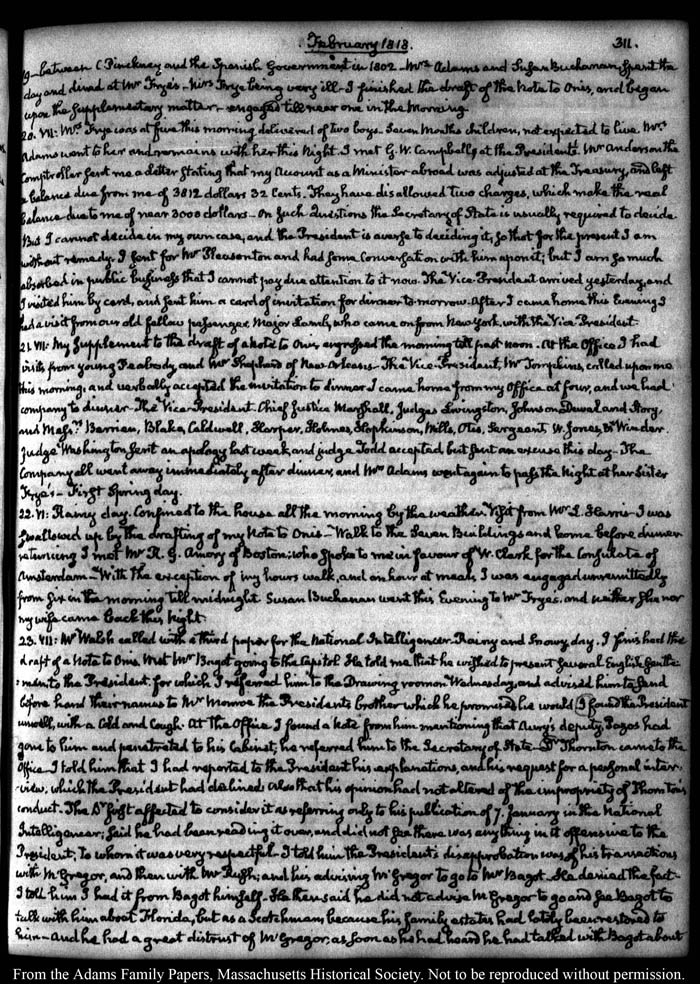 February 1818. 311.
19 between C Pinckney and the Spanish Government in 1802. Mrs Adams and Susan Buchanan, spent the
day and dined at Mr Frye's. Mrs Frye being very ill. I finished the draft of the Note to Onis, and began
upon the Supplementary matter. engaged till near one in the Morning.
20. VII: Mrs Frye was at five this morning delivered of two boys. Seven Months children, not expected to live. Mrs
Adams went to her and remains with her this Night. I met G. W. Campbell at the Presidents. Mr Anderson the
Comptroller sent me a letter stating that my Account as a Minister abroad was adjusted at the Treasury, and left
a balance due from me of 3812 dollars 32 Cents. They have disallowed two charges, which make the real
balance due to me of near 3000 dollars. On such Questions the Secretary of State is usually required to decide.
But I cannot decide in my own case, and the President is averse to deciding it, so that for the present I am
without remedy. I sent for Mr Pleasonton and had some Conversation with him upon it; but I am so much
absorbed in public business that I cannot pay due attention to it now. The Vice-President arrived yesterday, and
I visited him by card, and sent him a card of invitation for dinner to-morrow. After I came home this Evening I
had a visit from our old fellow passenger Major Lamb, who came on from New York with the Vice President.
21. VII: My Supplement to the draft of a Note to Onis, engrossed the morning till past noon. At the Office I had
visits from young Peabody, and Mr Shepherd of New Orleans. The Vice-President, Mr Tompkins, called upon me
this morning, and verbally accepted the invitation to dinner. I came home from my Office at four, and we had
company to dinner. The Vice-President. Chief Justice Marshall, Judges Livingston, Johnson Duval and Story,
and Messrs Berrien, Blake, Caldwell, Harper, Holmes, Hopkinson, Mills, Otis, Sergeant W. Jones, & Winder.
Judge Washington sent an apology last week, and judge Todd accepted but sent an excuse this day. The
Company all went away immediately after dinner, and Mrs Adams went again to pass the Night at her Sister
Frye's. First Spring day.
22. VI: Rainy day. Confined to the house all the morning by the weather. Visit from Mr L. Harris. I was
swallowed up by the drafting of my Note to Onis. Walk to the Seven Buildings and home before dinner
returning I met Mr R. G. Amory of Boston; who spoke to me in favour of W. Clark for the Consulate of
Amsterdam. With the exception of my hours walk, and an hour at meals, I was engaged unremittedly
from six in the morning till midnight. Susan Buchanan went this Evening to Mr Fryes, and neither she nor
my wife came back this Night.
23. VII: Mr Walsh called with a third paper for the National Intelligencer. Rainy and Snowy day. I finished the
draft of a Note to Onis. Met Mr Bagot going to the Capitol. He told me that he wished to present several English Gentle-
:men to the President. for which I referred him to the Drawing room on Wednesday, and advised him to send
before hand their names to Mr Monroe the Presidents brother which he promised he would. I found the President
unwell, with a Cold and Cough. At the Office I found a Note from him mentioning that Aury's deputy, Pazos had
gone to him and penetrated to his Cabinet; he referred him to the Secretary of State. Dr Thornton came to the
Office. I told him that I had reported to the President his explanations, and his request for a personal inter-
:view, which the President had declined. Also that his opinion had not altered of the impropriety of Thornton's
conduct. The Dr first affected to consider it as referring only to his publication of 7. January in the National
Intelligencer; said he had been reading it over, and did not see there was any thing in it offensive to the
President, to whom it was very respectful. I told him the President's disapprobation was of his transactions
with McGregor, and then with Mr Rush; and his advising McGregor to go to Mr Bagot. He denied the fact.
I told him I had it from Bagot himself. He then said he did not advise McGregor to go and see Bagot to
talk with him about Florida, but as a Scotchman, because his family estates had lately been restored to
him. And he had a great distrust of McGregor, as soon as he had heard he had talked with Bagot about
From the Adams Family Papers, Massachusetts Historical Society. Not to be reproduced without permission.